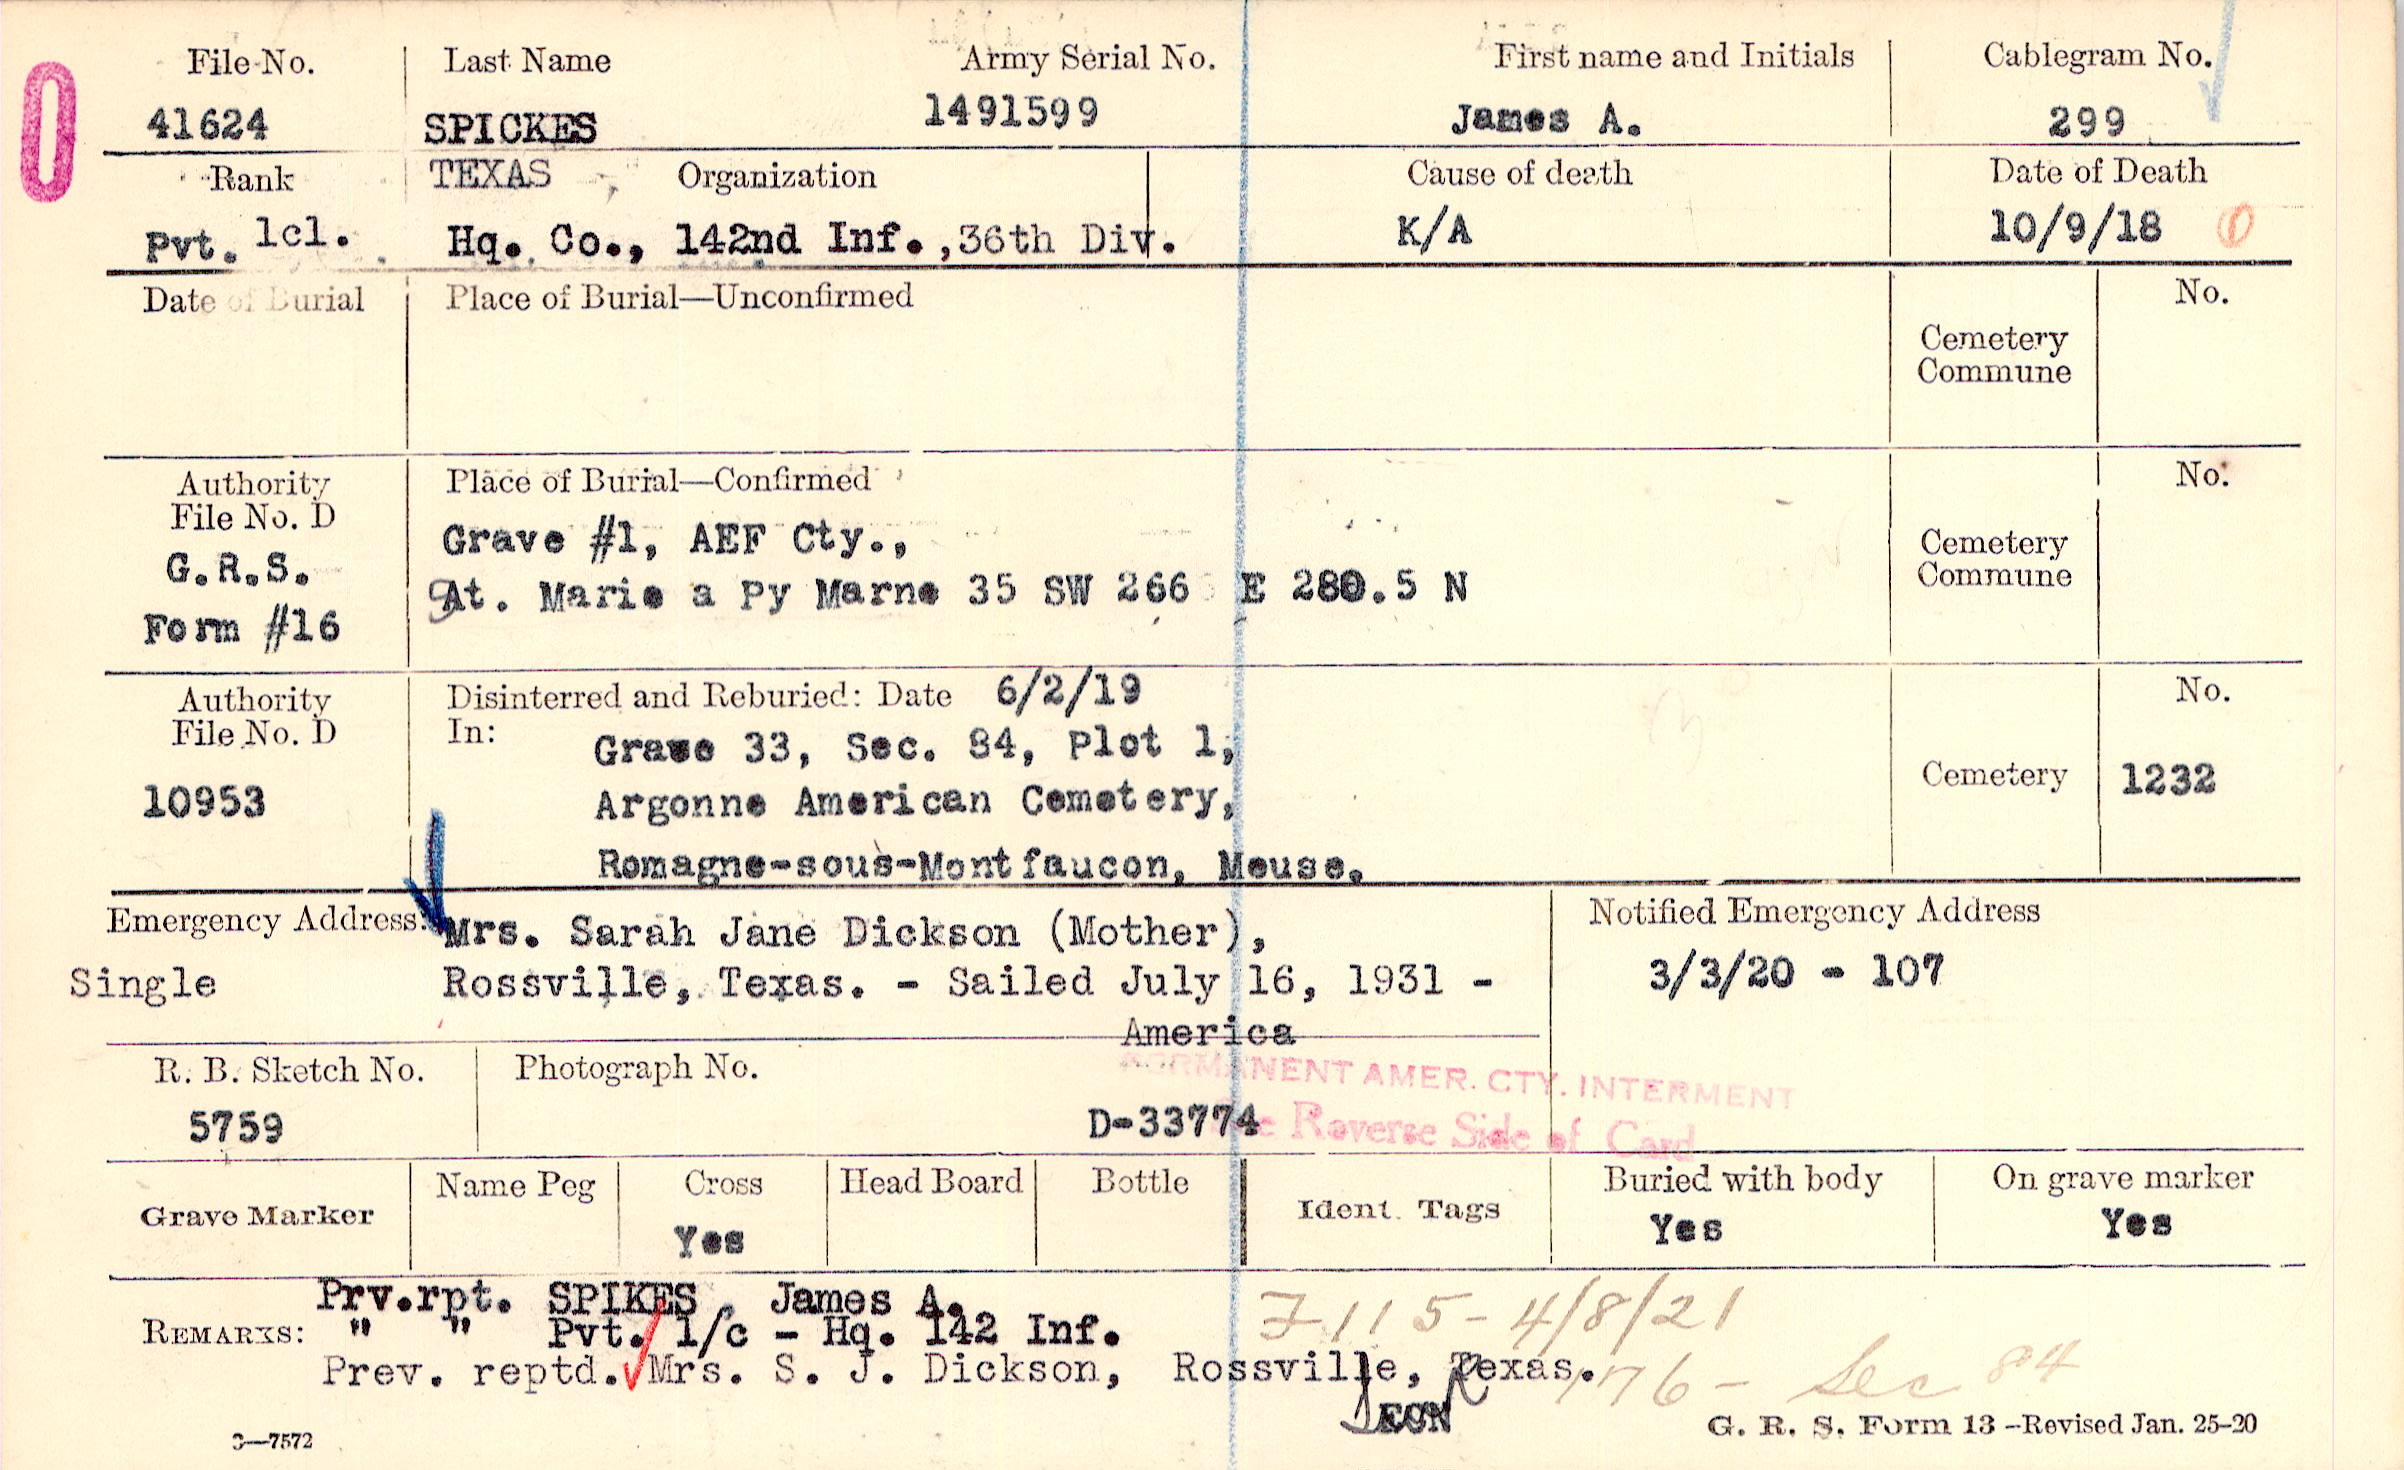 File No.
Last Name
Army Serial No.
First name and Initials
Cablegram No.
41624
SPICKES
1491599
James A.
299
Rank
TEXAS
Organization
Cause of death
Date of Death
Pvt. 1cl.
Hq. Co., 142nd Inf., 36th Div.
K/A
10/9/18
Date of Burial
Place of Burial—Unconfirmed
No.
Cemetery
Commune
Authority
File No. D
Place of Burial—Confirmed
No.
G.R.S.
Form #16
Grave #1, AEF Cty.,
St. Marie a Py Marne 35 SW 266 E 280.5 N
Cemetery
Commune
Authority
File No. D
Disinterred and Reburied: Date 6/2/19
No.
In:
10953
Grave 33, Sec. 84, Plot 1,
Argonne American Cemetery,
Romagne-sous-Montfaucon, Meuse.
Cemetery
1232
Emergency Address:
Mrs. Sarah Jane Dickson (Mother),
Notified Emergency Address
Single
Rossville, Texas. - Sailed July 16, 1931 -
America
3/3/20 - 107
R. B. Sketch No.
Photograph No.
PERMANENT AMER. CTY. INTERMENT
See Reverse Side of Card
5759
D-33774
Grave Marker
Name Peg
Cross
Head Board
Bottle
Ident. Tags
Buried with body
On grave marker
Yes
Yes
Yes
REMARKS:
Prv.rpt. SPIKES, James A.
" " Pvt. 1/c - Hq. 142 Inf.
Prev. reptd. Mrs. S. J. Dickson, Rossville, Texas.
4/8/21
176 - Sec 84
3—7572
G. R. S. Form 13 -Revised Jan. 25-20